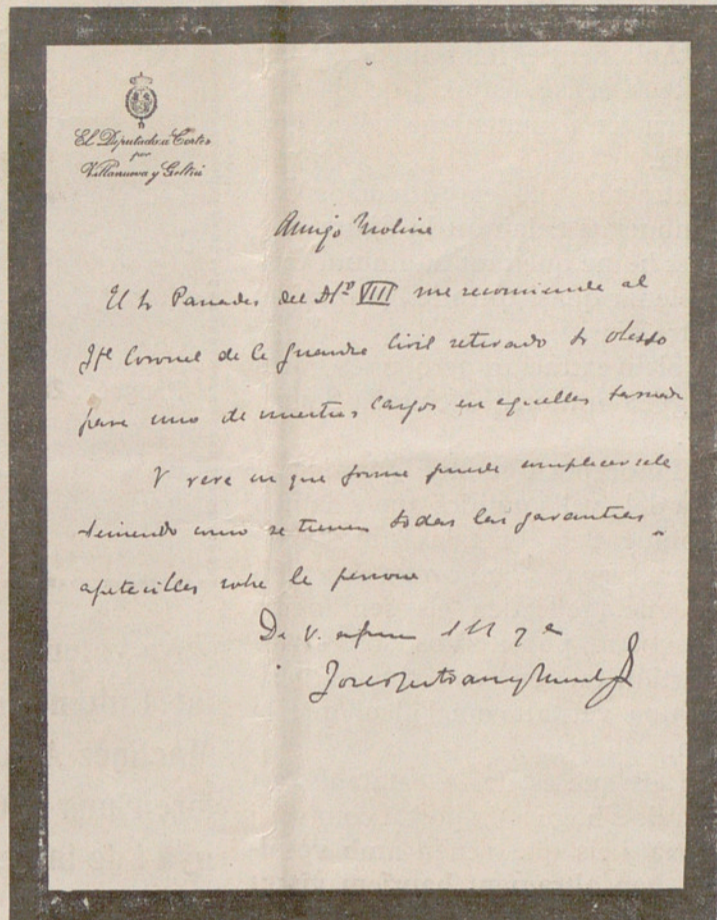 El Diputado a Cortes
por
Villanueva y Geltrú
Amigo Moline
El Sr Panades del Dto VIII me recomienda al
Coronel de la Guardia Civil retirado Sr
para uno de nuestros cargos en aquellas
V vera en que forma puede complacersele
teniendo como se tienen todas las garantias
apetecibles sobre la persona
De V. afmo
José Bertran y Musitu